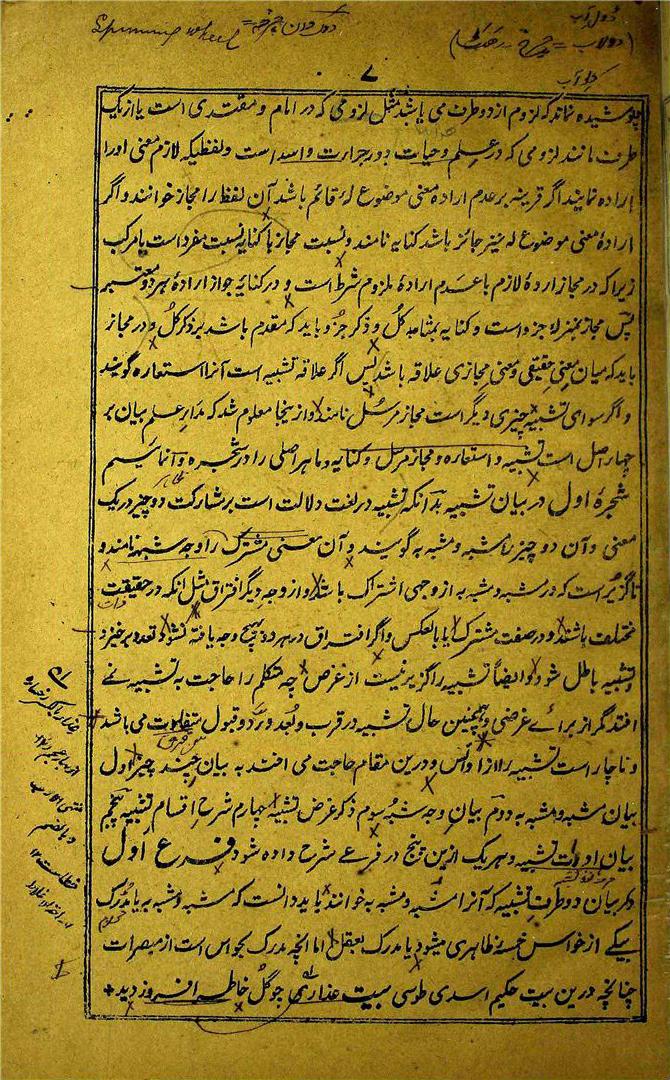 Spinning wheel = چرخہ
۷
پوشیده نماند که لزوم از دو طرف می باشد مثل لزومی که در امام و مقتدی است یا از یک
طرف مانند لزومی که در علم و حیات و در جرات و اسد است و لفظیکه لازم معنی اورا
اراده نمایند اگر قرینه بر عدم اراده معنی موضوع له قائم باشد آن لفظ را مجاز خوانند و اگر
ارادهٔ معنی موضوع له نیز جائز باشد کنایه نامند و نسبت مجاز با کنایه نسبت مفرد است با مرکب
زیرا که در مجاز ارادهٔ لازم با عدم ارادهٔ ملزوم شرط است و در کنایه جواز ارادهٔ هر دو معتبر
پس مجاز بمنزلهٔ جزو است و کنایه بمثابه کُل و ذکر جزو باید که مقدم باشد بر ذکر کُل و در مجاز
باید که میان معنی حقیقی و معنی مجازی علاقه باشد پس اگر علاقه تشبیه است آنرا استعاره گویند
و اگر سوای تشبیه چیزی دیگر است مجاز مرسل نامند و از ینجا معلوم شد که مدار علم بیان بر
چهار اصل است تشبیه و استعاره و مجاز مرسل و کنایه و ما هر اصلی را در شجره وا نمائیم
شجرهٔ اول در بیان تشبیه بدآنکه تشبیه در لغت دلالت است بر مشارکت دو چیز در یک
معنی و آن دو چیز را مشبه و مشبه به گویند و آن معنی مشترک را وجه شبه نامند و
ناگزیر است که در مشبه و مشبه به از وجهی اشتراک باشد و از وجه دیگر افتراق مثل انکه در حقیقت
مختلف باشند و در صفت مشترک یا بالعکس و اگر افتراق در هر دو بهیچ وجه یافته نشود تعدد بر خیزد
و تشبیه باطل شود و ایضاً تشبیه را گزیر نیست از غرض چه متکلم را حاجت به تشبیه نمے
افتد مگر از برائے غرضی و همچنین حال تشبیه در قرب و بُعد و رَد و قبول متفاوت می باشد
و ناچار است تشبیه را از ادات و درین مقام حاجت می افتد به بیان چند چیز اول
بیان مشبه و مشبه به دوم بیان وجه شبه سوم ذکر غرض تشبیه چهارم شرح اقسام تشبیه پنجم
بیان ادوات تشبیه و هر یک ازین پنج در فرعے شرح داده شود فرع اول
در بیان دو طرف تشبیه که آنرا مشبه و مشبه به خوانند باید دانست که مشبه و مشبه به یا مُدرَک
بیکے از حواس خمسه ظاهری میشود یا مدرک بعقل اما انچه مدرک بحواس است از مبصرات
چنانچه درین بیت حکیم اسدی طوسی بیت عذاری چو گل خاطر افروز دید